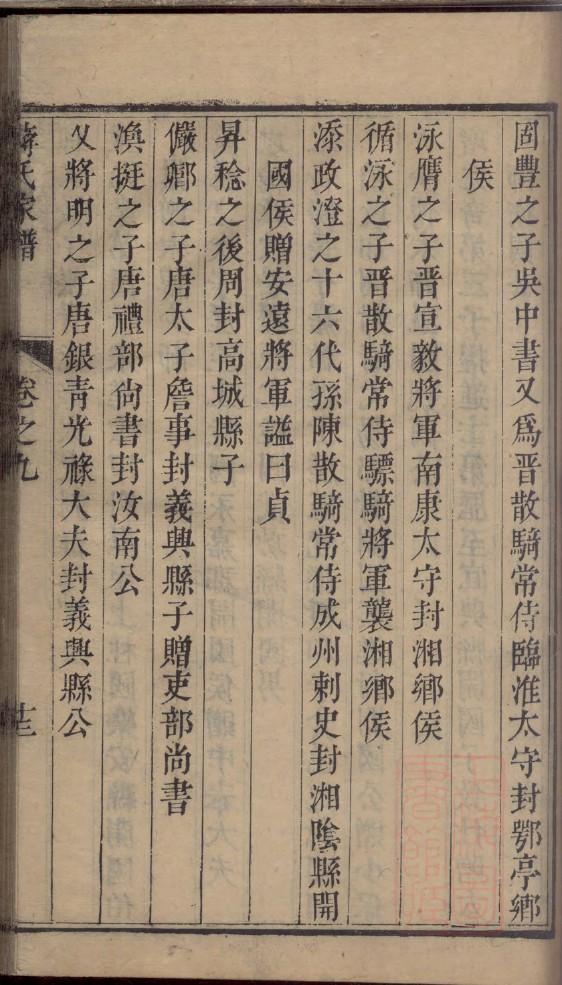 固豐之子吳中書又爲晋散騎常侍臨淮太守封鄂亭鄉
侯
泳膺之子晋宣毅將軍南康太守封湘鄉侯
循泳之子晋散騎常侍驃騎將軍襲湘鄉侯
添政澄之十六代孫陳散騎常侍成州刺史封湘陰縣開
國侯贈安遠將軍謚曰貞
昇稔之後周封高城縣子
儼卿之子唐太子詹事封義興縣子贈吏部尚書
渙挺之子唐禮部尚書封汝南公
乂將明之子唐銀青光祿大夫封義興縣公
蔣氏家譜
卷之九
十三